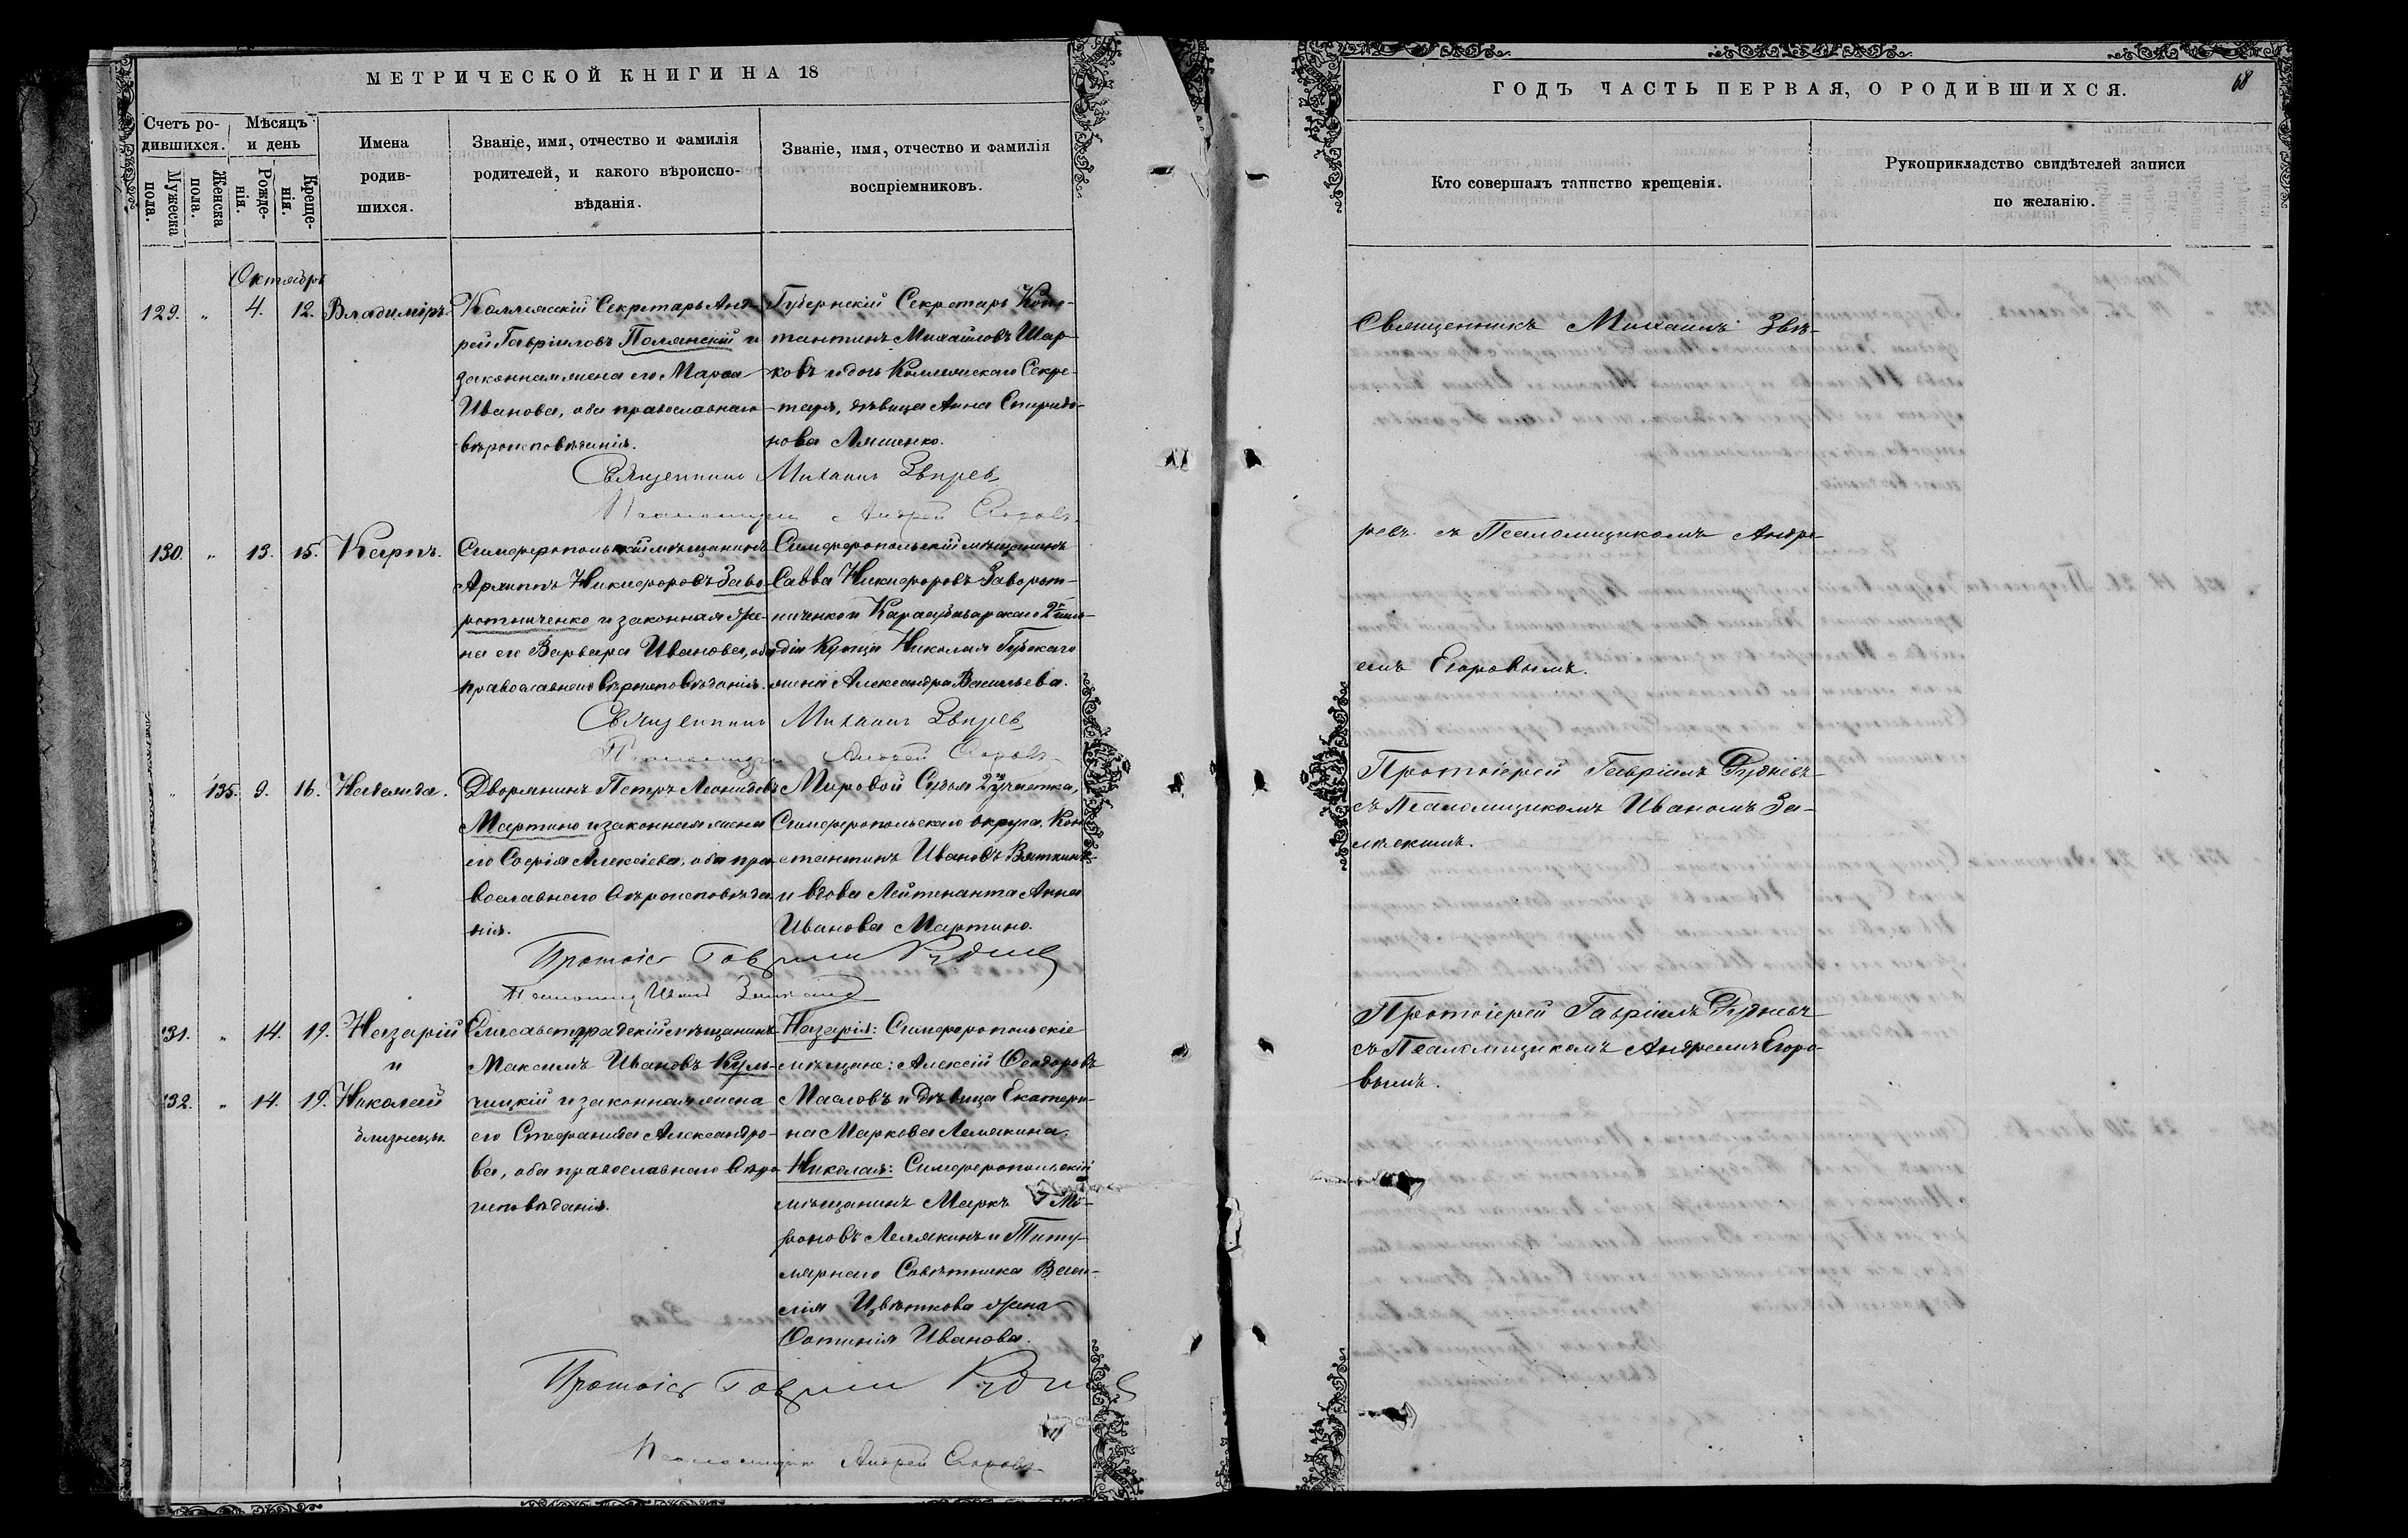 МЕТРИЧЕСКОЙ КНИГИ НА 18
Счетъ ро-
дившихся.
Мѣсяцъ
и день
Мужеска
пола.
Женска
пола.
Рожде-
нія.
Креще-
нія.
Имена
родив-
шихся.
Званіе, имя, отчество и фамилія
родителей, и какого вѣроиспо-
вѣданія.
Званіе, имя, отчество и фамилія
воспріемниковъ.
Октябрь
129. " 4. 12. Владиміръ.
Коллежскій Секретарь Анд-
рей Гавріиловъ Полянскій и
законная жена его Марѳа
Иванова, оба православнаго
вѣроисповѣданія.
Губернскій Секретарь Конс-
тантинъ Михайловъ Шар-
ковъ и дочь Коллежскаго Секре-
таря, дѣвица Анна Спиридо-
нова Ляшенко.
Священникъ Михаилъ Звѣрев
Псаломщикъ Андрей Егоровъ
130. " 13. 15. Карпъ.
Симферопольскій мѣщанинъ
Архиппъ Никифоровъ Заво-
ротниченко и законная же-
на его Варвара Иванова, оба
православнаго вѣроисповѣданія.
Симферопольскій мѣщанинъ
Савва Никифоровъ Заворот-
ниченко и Карасубазарскаго 2й гиль-
діи Купца Николая Губскаго
жена Александра Васильева.
Священникъ Михаилъ Звѣрев
Псаломщикъ Андрей Егоровъ
" 135. 9. 16. Наталида.
Дворянинъ Петръ Леонидовъ
Мартино и законная жена
его Софія Алексіева, оба пра-
вославнаго вѣроисповѣда-
нія.
Мировой Судья 2го участка,
Симферопольскаго округа, Кон-
стантинъ Ивановъ Вяткинъ
и вдова Лейтенанта Анна
Иванова Мартино.
Протоіер Гавриил Руднев
Псаломщ Иванъ
131. " 14. 19. Назарій
и
132. " 14. 19. Николай
близнецы.
Елисаветградскій мѣщанинъ
Максимъ Ивановъ Куль-
чицкій и законная жена
его Стефанида Александро-
ва, оба православнаго вѣро-
исповѣданія.
Назарія: Симферопольскіе
мѣщане: Алексій Ѳеодоровъ
Масловъ и дѣвица Екатери-
на Маркова Лемякина.
Николая: Симферопольскій
мѣщанинъ Маркъ Ми-
роновъ Лемякинъ и Титу-
лярнаго Совѣтника Васи-
лія Цвѣткова жена
Фотинія Иванова.
Протоіер Гавриил Руднев
Псаломщикъ Андрей Егоровъ
ГОДЪ ЧАСТЬ ПЕРВАЯ, О РОДИВШИХСЯ.
68
Кто совершалъ таинство крещенія.
Рукоприкладство свидѣтелей записи
по желанію.
Священникъ Михаилъ Звѣ-
ревъ съ Псаломщикомъ Андре-
емъ Егоровымъ.
Протоіерей Гавріилъ Рудневъ
съ Псаломщикомъ Иваномъ За-
лѣскимъ.
Протоіерей Гавріилъ Рудневъ
съ Псаломщикомъ Андреемъ Егоро-
вымъ.